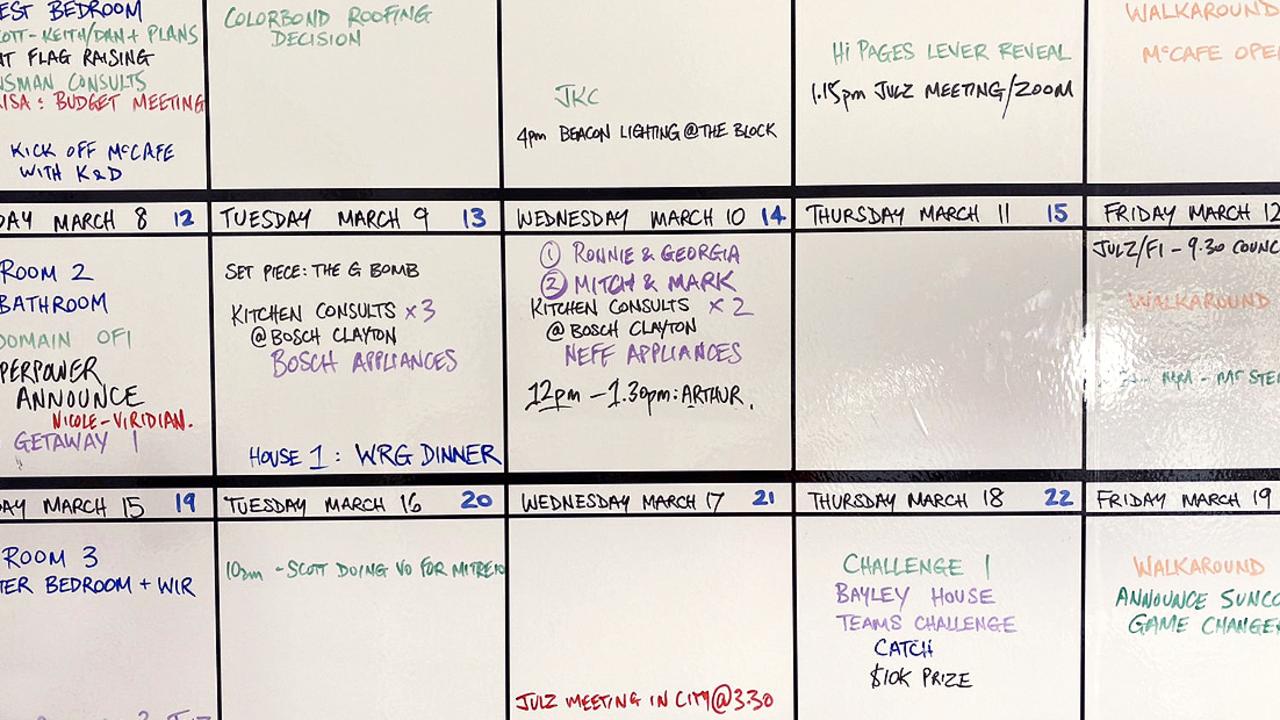 EST BEDROOM
OTT - KEITH/DAN + PLANS
NT FLAG RAISING
NSMAN CONSULTS
ISA : BUDGET MEETING
KICK OFF McCAFE
WITH K&D
COLORBOND ROOFING
DECISION
JKC
4pm BEACON LIGHTING @ THE BLOCK
Hi PAGES LEVER REVEAL
1.15pm JULZ MEETING/ZOOM
WALKAROUND
McCAFE OPE
DAY MARCH 8 12
ROOM 2
BATHROOM
DOMAIN OFI
PERPOWER
ANNOUNCE
NICOLE - VIRIDIAN.
GETAWAY 1
TUESDAY MARCH 9 13
SET PIECE: THE G BOMB
KITCHEN CONSULTS x 3
@ BOSCH CLAYTON
BOSCH APPLIANCES
HOUSE 1 : WRG DINNER
WEDNESDAY MARCH 10 14
① RONNIE & GEORGIA
② MITCH & MARK
KITCHEN CONSULTS x 2
@ BOSCH CLAYTON
NEFF APPLIANCES
12pm - 1.30pm: ARTHUR.
THURSDAY MARCH 11 15
FRIDAY MARCH 12
JULZ/FI - 9.30 COUNC
WALKAROUND
DAY MARCH 15 19
ROOM 3
TER BEDROOM + WIR
TUESDAY MARCH 16 20
10am - SCOTT DOING VO FOR MITRE10
WEDNESDAY MARCH 17 21
JULZ MEETING IN CITY @ 3.30
THURSDAY MARCH 18 22
CHALLENGE 1
BAYLEY HOUSE
TEAMS CHALLENGE
CATCH
$10K PRIZE
FRIDAY MARCH 19
WALKAROUND
ANNOUNCE SUNCO
GAME CHANGE